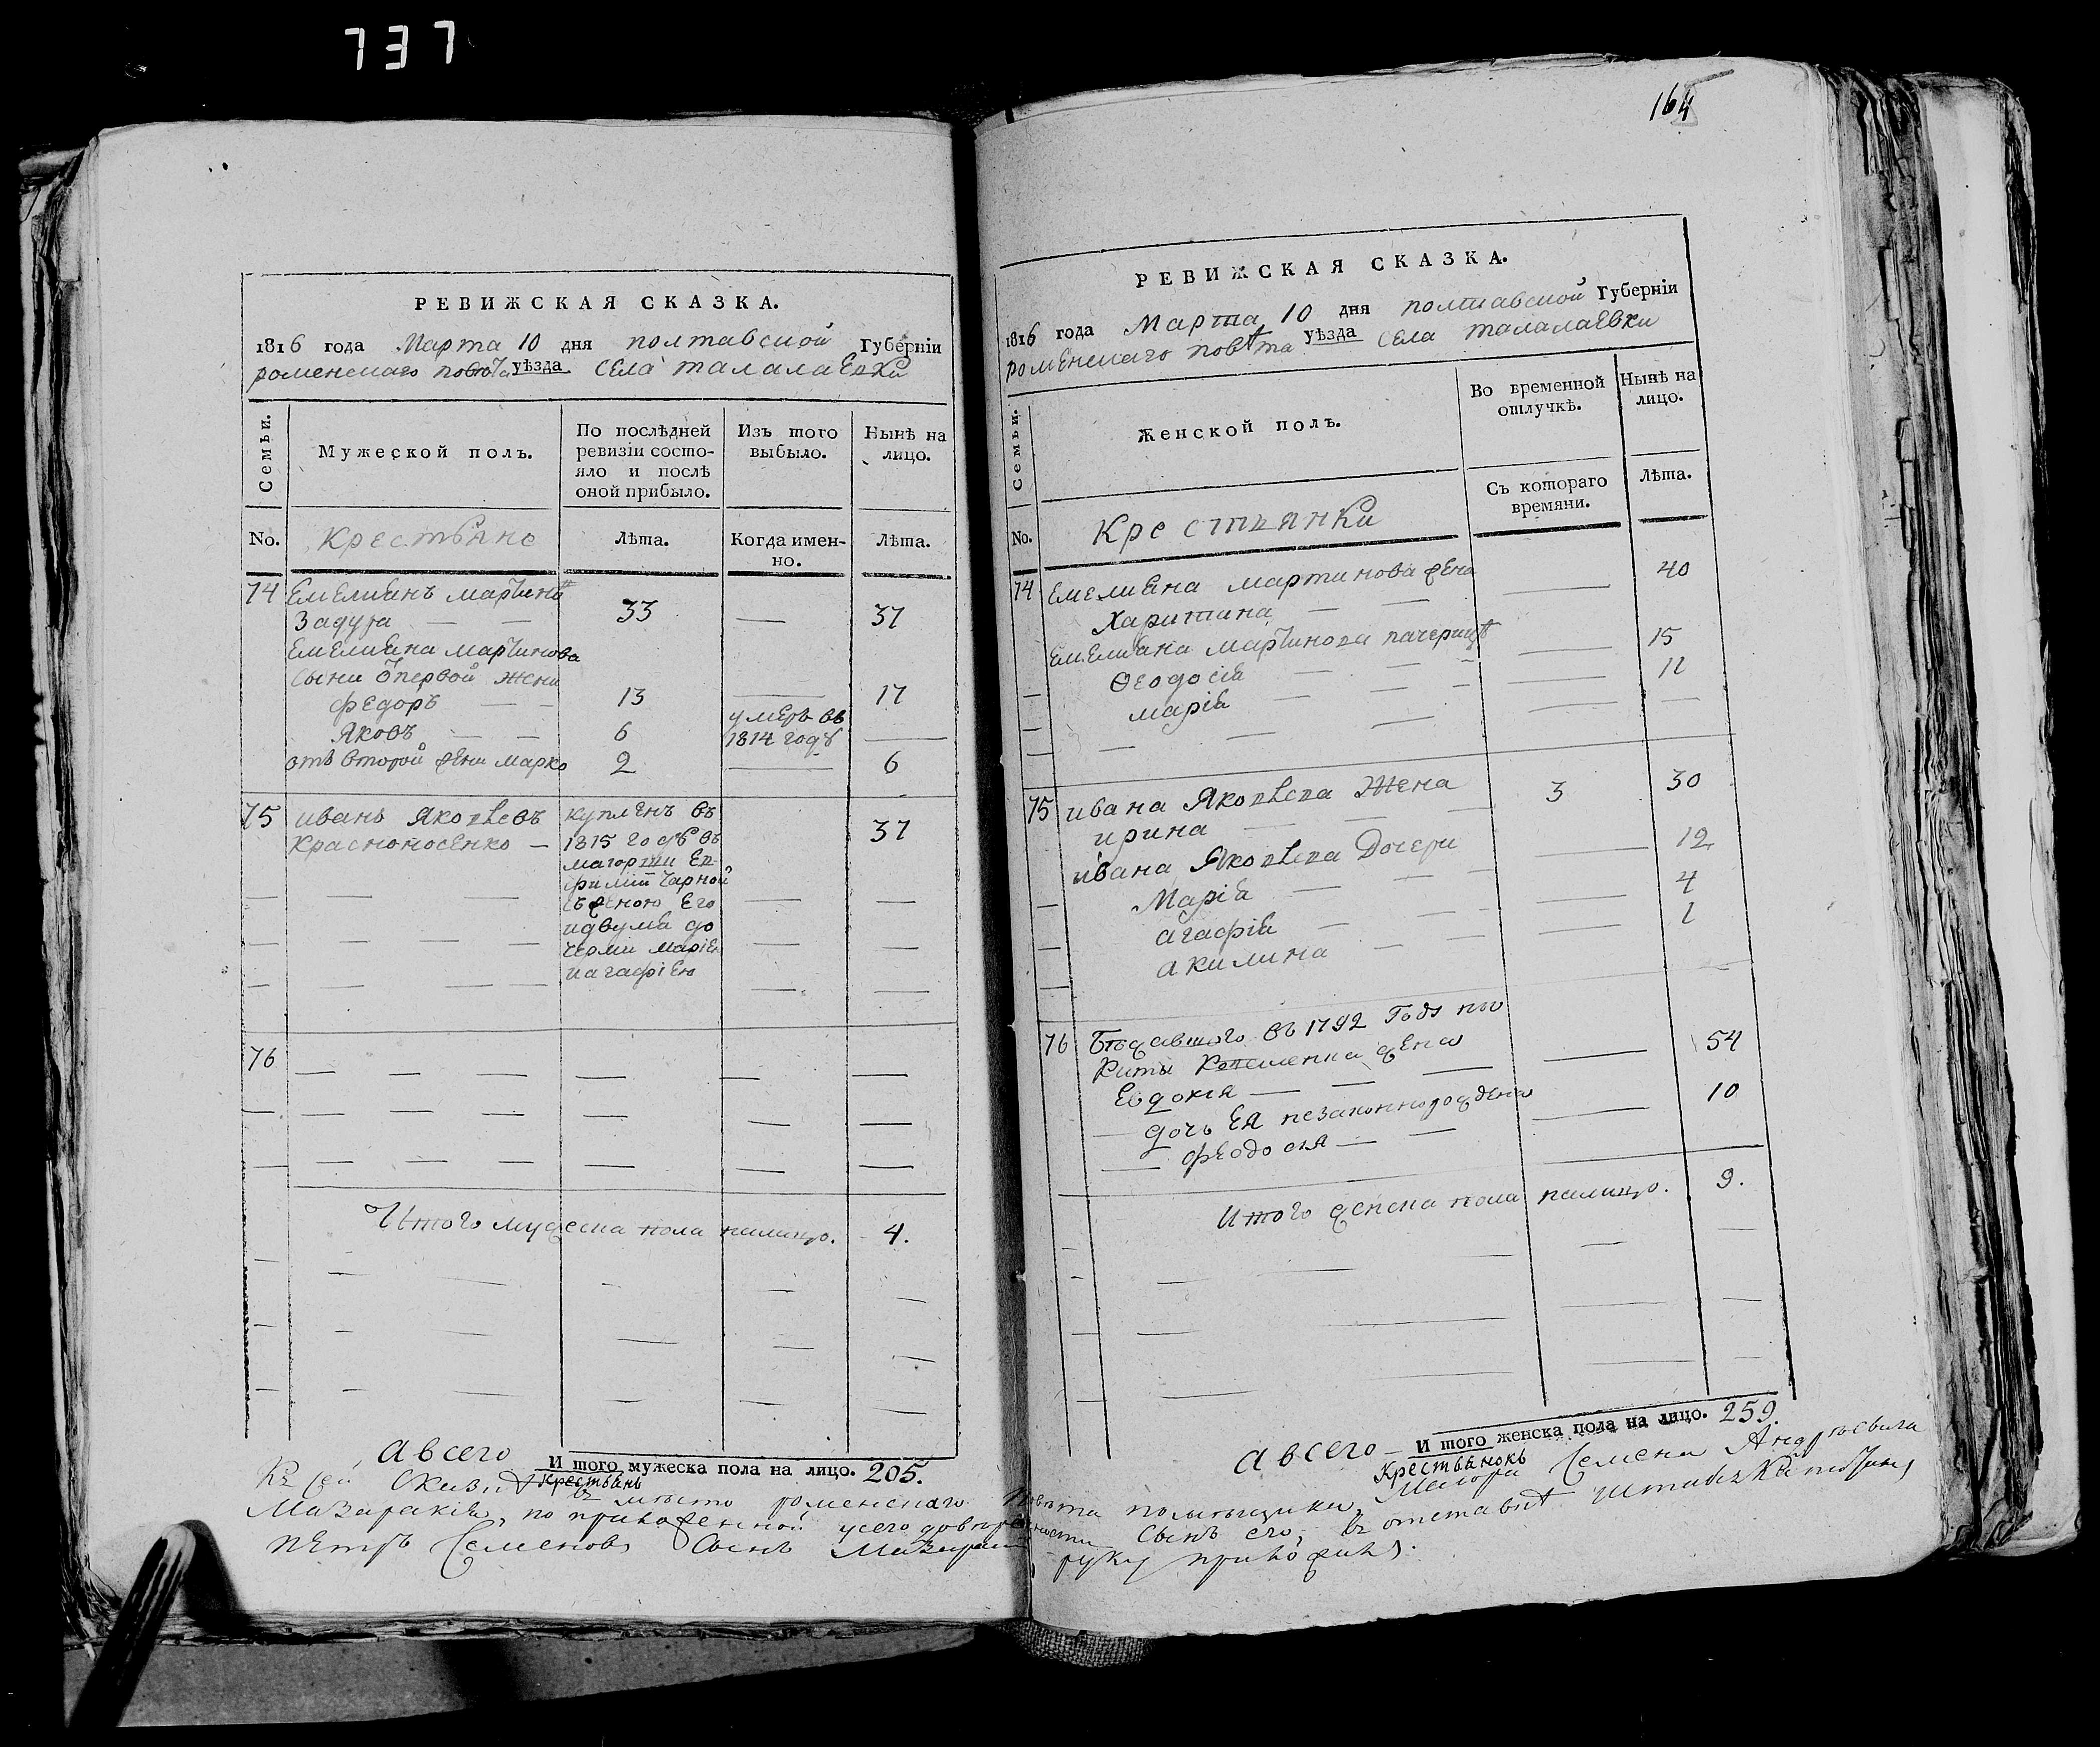 737
РЕВИЖСКАЯ СКАЗКА.
1816 года Марта 10 дня полтавской Губерніи
роменскаго повѣта уѣзда села талалаевки
Семьи.
Мужеской полъ.
По послѣдней ревизіи состо-
яло и послѣ
оной прибыло.
Изъ того
выбыло.
Нынѣ на
лицо.
No.
крестьяне
Лѣта.
Когда имен-
но.
Лѣта.
74 Емелианъ мартинов
Задура — — 33 — 37
Емелиана мартинова
сыни первой жени
федоръ — — 13 — 17
Яковъ — — 6 умеръ въ 1814 году —
отъ второй жени марко 2 — 6
75 иванъ Яковлевъ
красноносенко — 37
купленъ въ
1815 годѣ въ
маіорши
чарной
съ женою его
идвума до
черми маріею
иагафіею
76
Итого мужеска пола налицо. 4.
а всего И того мужеска пола на лицо. 205.
крестьянь
Къ сей Сказки вмѣсто роменскаго
Мазаракія, по приложенной
петръ Семеновъ Сынъ
164
РЕВИЖСКАЯ СКАЗКА.
1816 года Марта 10 дня полтавской Губерніи
роменскаго повѣта уѣзда села талалаевки
Семьи.
Женской полъ.
Во временной
отлучкѣ.
Нынѣ на
лицо.
Съ котораго
времяни.
Лѣта.
No.
Крестьянки
74 емелияна мартинова жена
Харитина — — — 40
емелиана мартинова падчерици
Ѳеодосія — — — 15
марія — — — 11
75 ивана Яковлева Жена
ирина — — 3 30
ивана Яковлева Дочери
Марія — — — 12
агафія — — — 4
акилина — — — 1
76 Бѣжавшого въ 1792 Годѣ ни
киты жена
Евдокія — — — 54
дочь Ея незаконнорождена
феодосія — — — 10
Итого женска пола налицо. 9.
а всего — И того женска пола на лицо. 259.
Крестьянокъ
повѣта помѣщика, Маіора Семена Андреевича
сынъ его, въ отставкѣ штабскапитанъ
руку приложилъ.